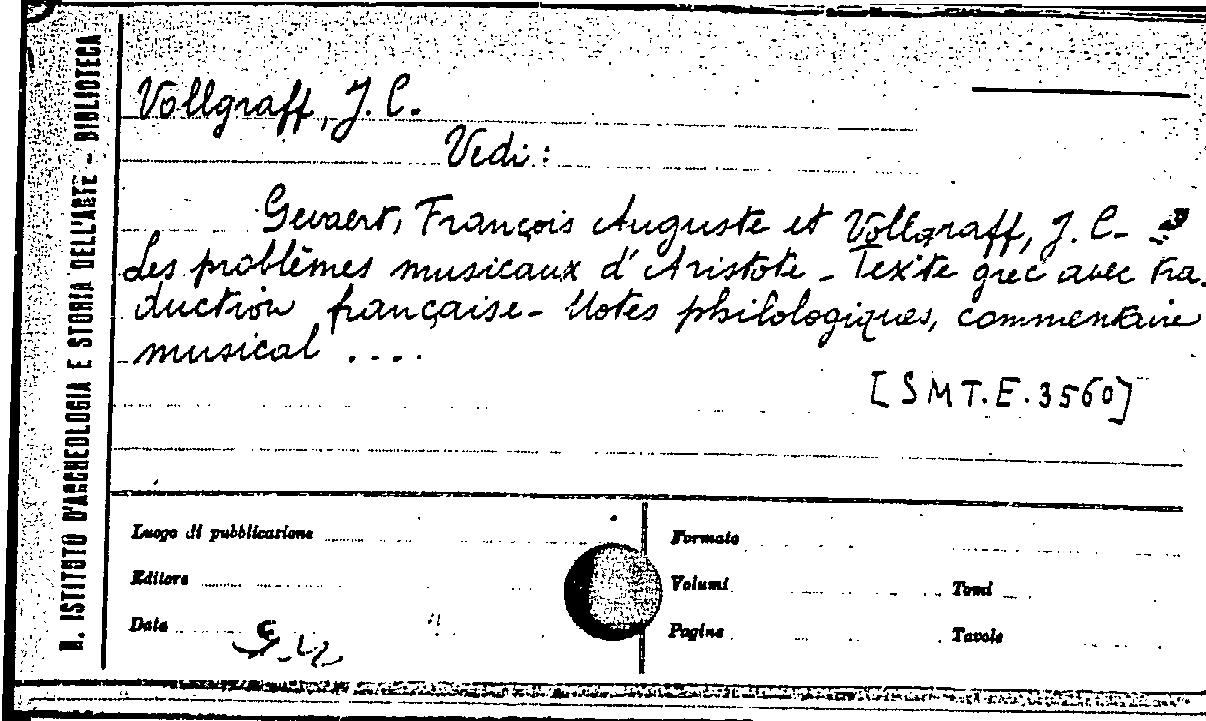 R. ISTITUTO D'ARCHEOLOGIA E STORIA DELL'ARTE - BIBLIOTECA
Vollgraff, J. C.
Vedi:
Gevaert, François Auguste et Vollgraff, J. C. -
Les problèmes musicaux d'Aristote - Texte grec avec tra-
duction française - Notes philologiques, commentaire
musical ....
[SMT.E.3560]
Luogo di pubblicazione
Editore
Data
Formato
Volumi
Tomi
Pagine
Tavole